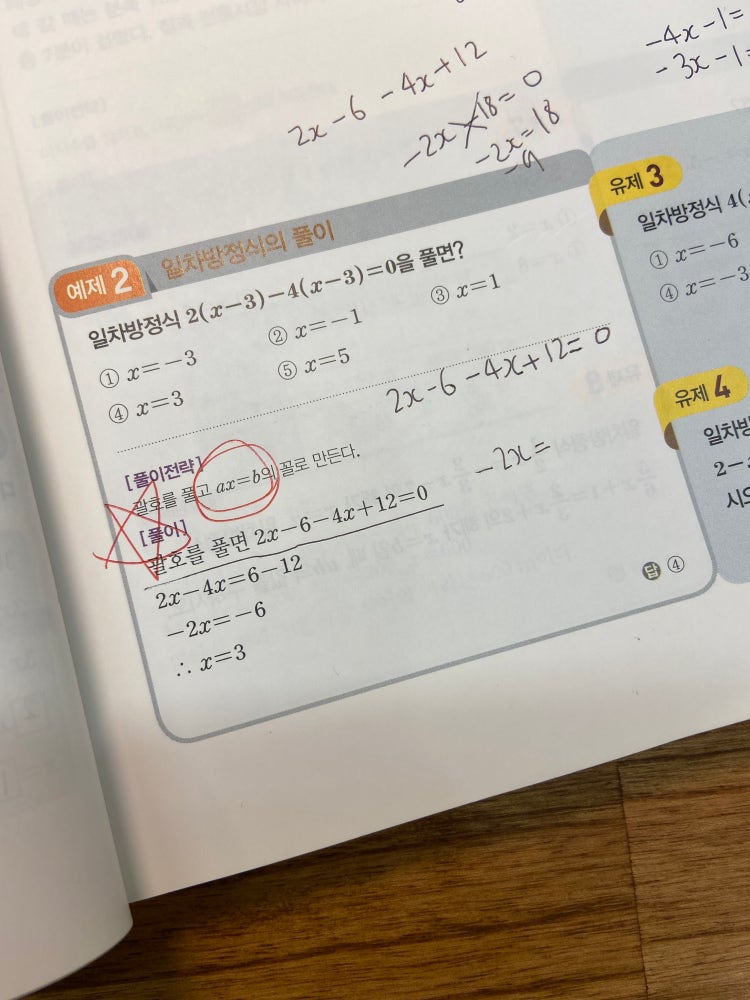 2x-6 -4x+12
-2x-18=0
-2x=18
-9
-4x-1=
-3x-1=
예제 2 일차방정식의 풀이
일차방정식 2(x-3)-4(x-3)=0을 풀면?
① x=-3
② x=-1
③ x=1
④ x=3
⑤ x=5
2x-6-4x+12=0
-2x=
[풀이전략]
괄호를 풀고 ax=b의 꼴로 만든다.
[풀이]
괄호를 풀면 2x-6-4x+12=0
2x-4x=6-12
-2x=-6
∴ x=3
답 ④
유제 3
일차방정식 4(
① x=-6
④ x=-3
유제 4
일차방
2-
시오